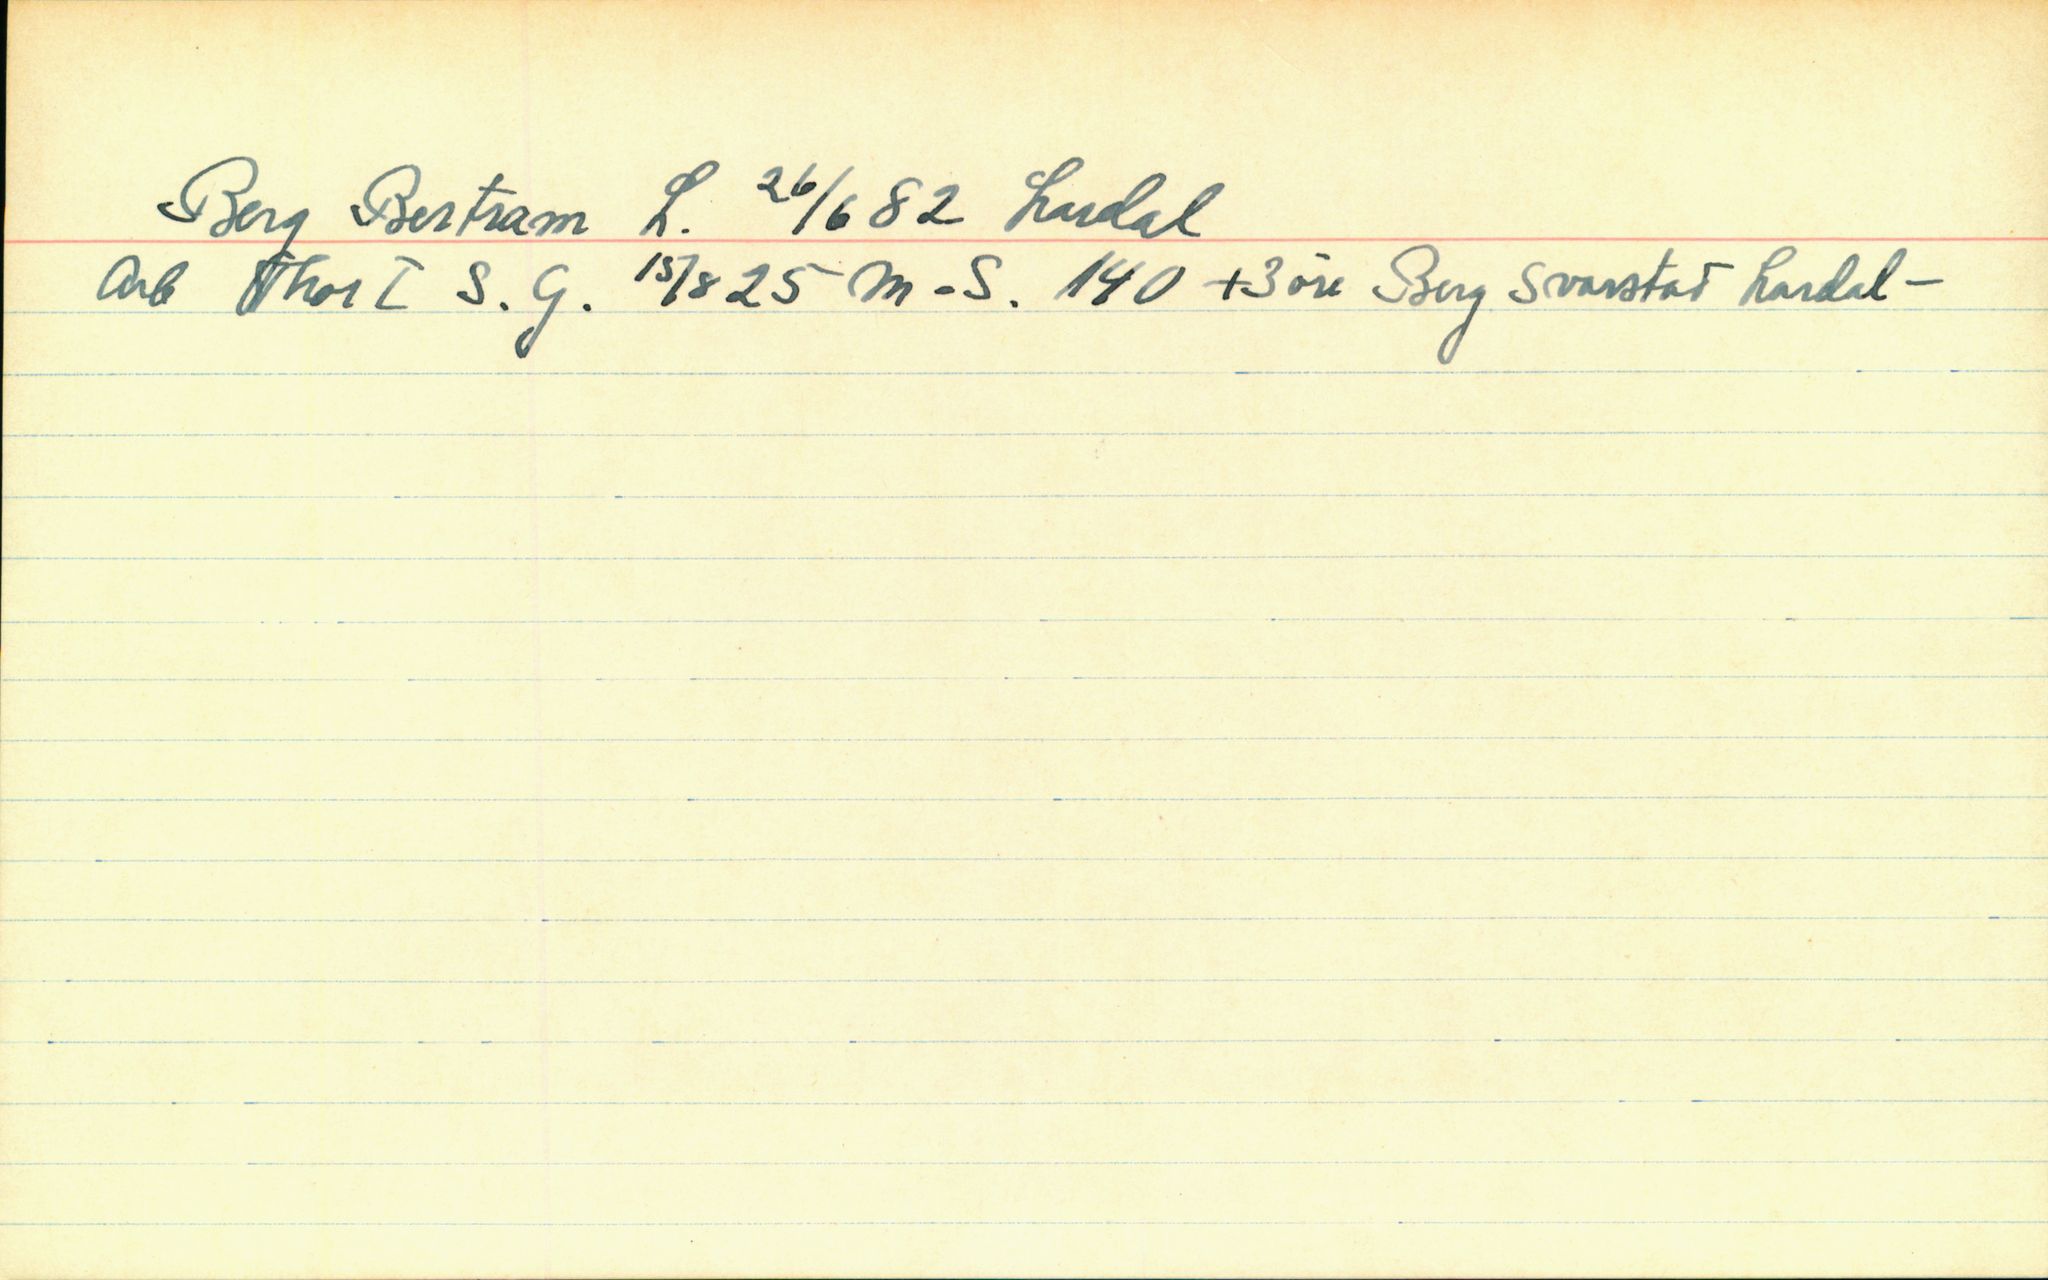 Berg Bertram L. 26/6 82 Lardal
Arb Thor I S. G. 15/8 25 M-S. 140 +3 öre Berg Svarstad Lardal-